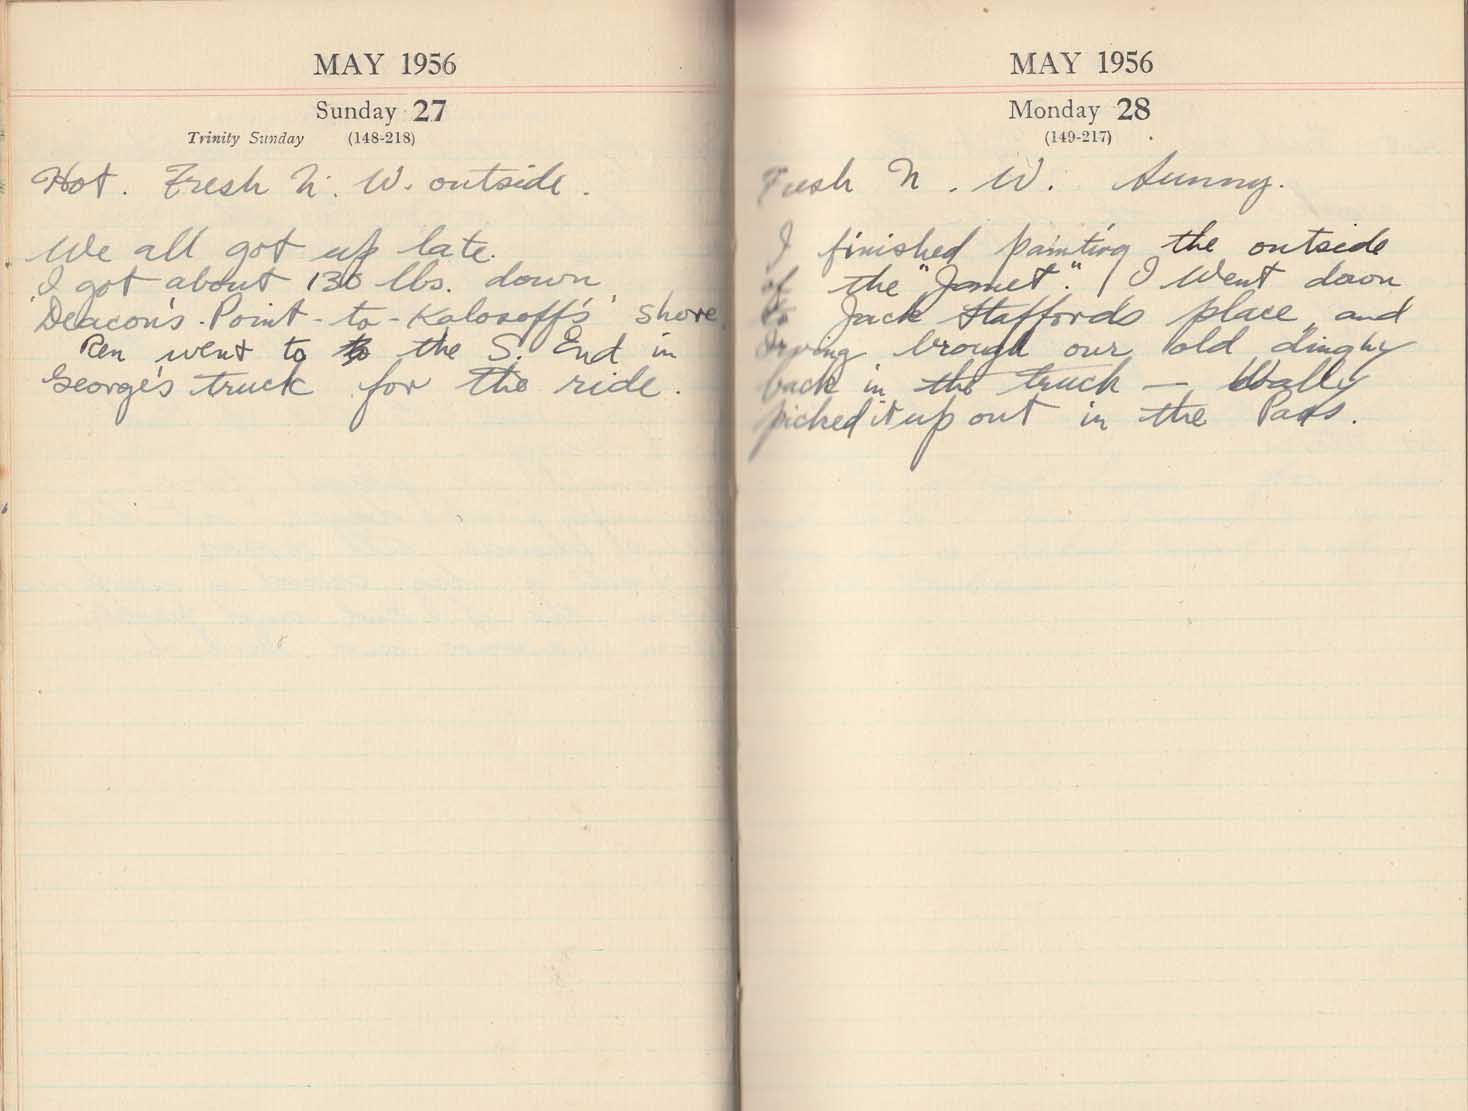 MAY 1956
Sunday 27
Trinity Sunday (148-218)
Hot. Fresh N. W. outside.
We all got up late.
I got about 130 lbs. down
Deacon's-Point-to-Kalosoff's' shore.
Pen went to to the S. End in
George's truck for the ride.
MAY 1956
Monday 28
(149-217)
Fresh N. W. Sunny.
I finished painting the outside
of the "Jamet." I Went down
to Jack Staffords place and
Irving brough our old dinghy
back in the truck — Wally
picked it up out in the Pass.